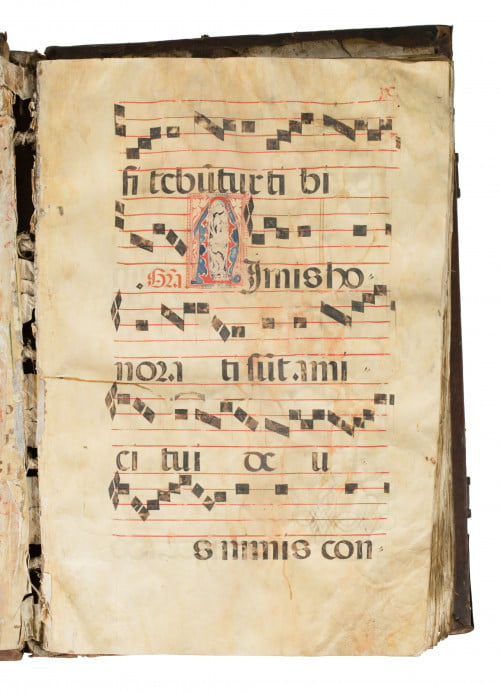 fi tebũtur ti bi
Gra NImis ho
nora ti sũt ami
ci tui de u
s nimis con